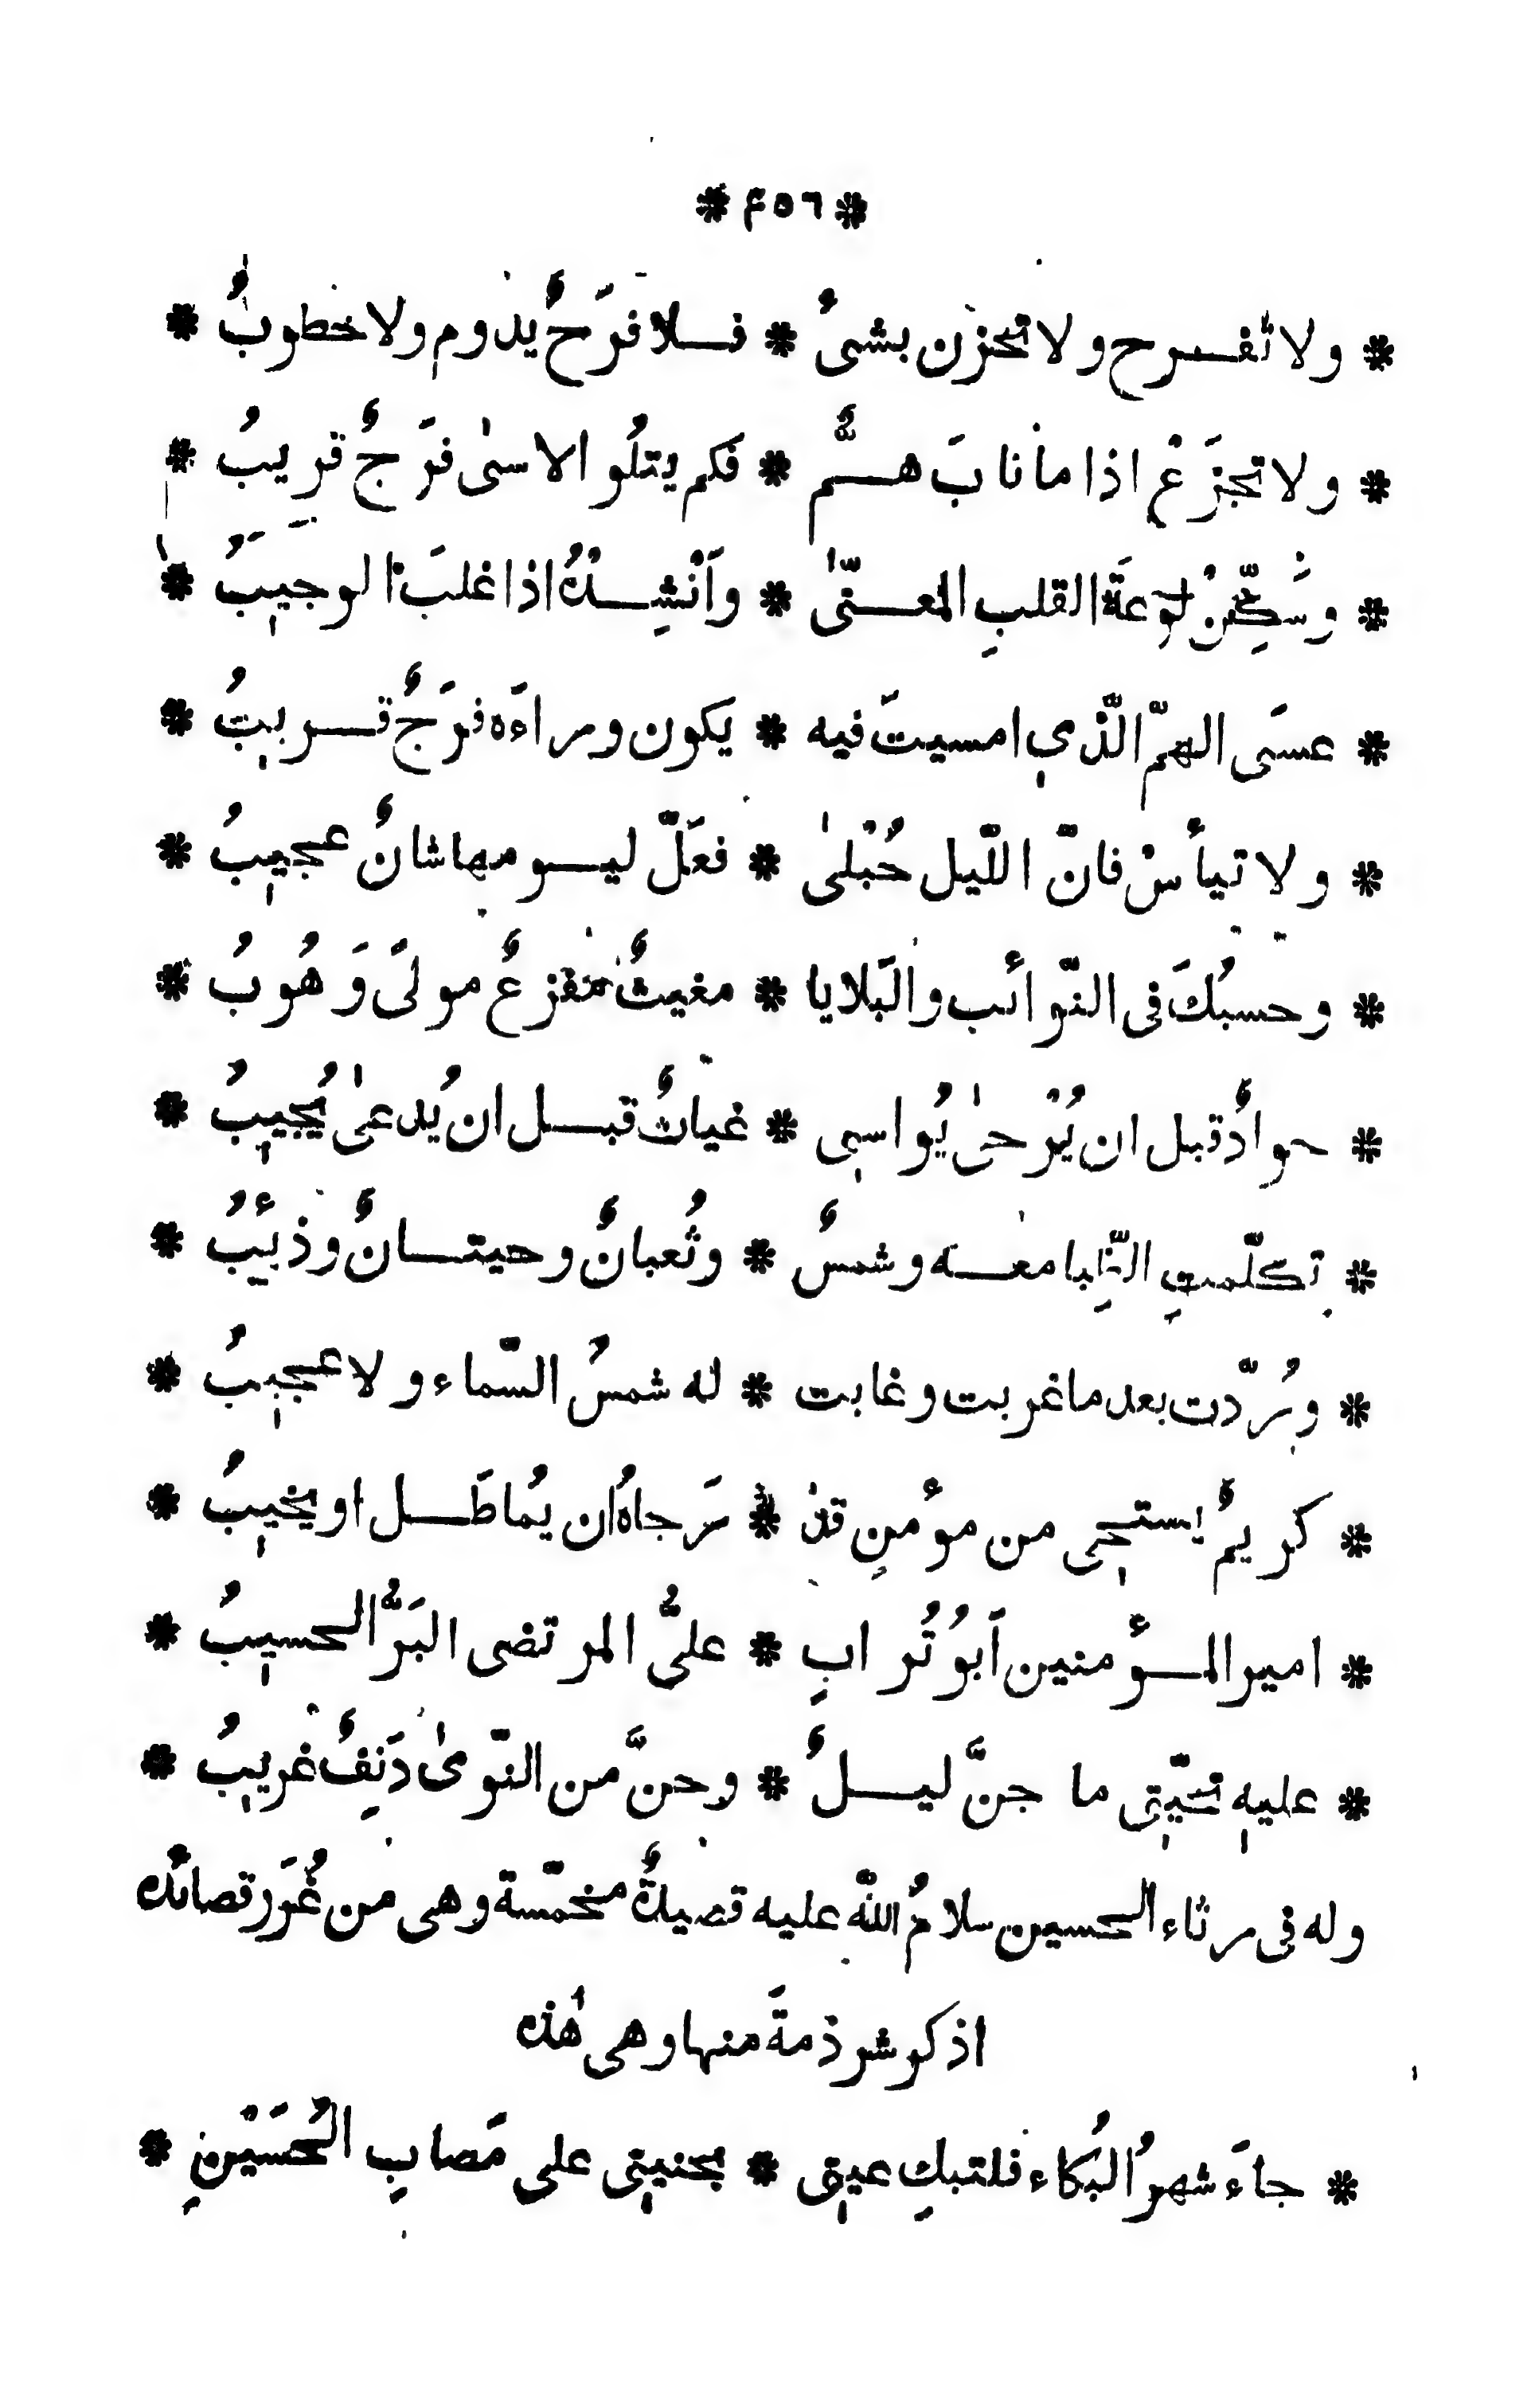 * ٤٥٦ *
* ولا تفرح ولا تحزن بشىءُ * فلا فرَحٌ يدوم ولا خطوبُ *
* ولا تجزَعْ اذا ما نابَ همٌّ * فكم يتلُو الاسىٰ فرَجٌ قريبُ *
* وسَكِّنْ لَوعَةَ القلبِ المعنّىٰ * وَاَنْشِدْهُ اذا غلبَ الوجيبُ *
* عسَى الهمّ الّذي امسيتَ فيه * يكون وراءَه فرَجٌ قريبُ *
* ولا تيأسْ فانّ اللّيل حُبْلىٰ * فعَلّ ليومها شانٌ عجيبُ *
* وحسبُكَ فى النّوائب والبَلايا * مغيثٌ مفزعٌ مولىً وَهُوبُ *
* جوادٌ قبل ان يُرْجىٰ يُواسي * غياثٌ قبل ان يُدعىٰ يُجيبُ *
* تكلّمتِ الظِّبا معه وشمسٌ * وثُعبانٌ وحيتانٌ وذئيبُ *
* ورُدّت بعد ما غربت وغابت * له شمسُ السّماء ولا عجيبُ *
* كريمٌ يستحي من مؤمنٍ قد * رَجاهُ ان يُماطَل او يخيبُ *
* امير المؤمنين اَبُو تُرابٍ * عليٌّ المرتضى البَرُّ الحسيبُ *
* عليهِ تحيّتي ما جنَّ ليلٌ * وحنَّ من النّوىٰ دَنِفٌ غريبُ *
وله فى رثاء الحسين سلامُ اللّه عليه قصيدةٌ مخمّسة وهى من غُرَر قصائده
اذكر شرذمةً منها وهى هٰذه
* جاءَ شهرُ البُكاء فلتبكِ عيني * بجنيني على مَصابِ الحُسَيْنِ *